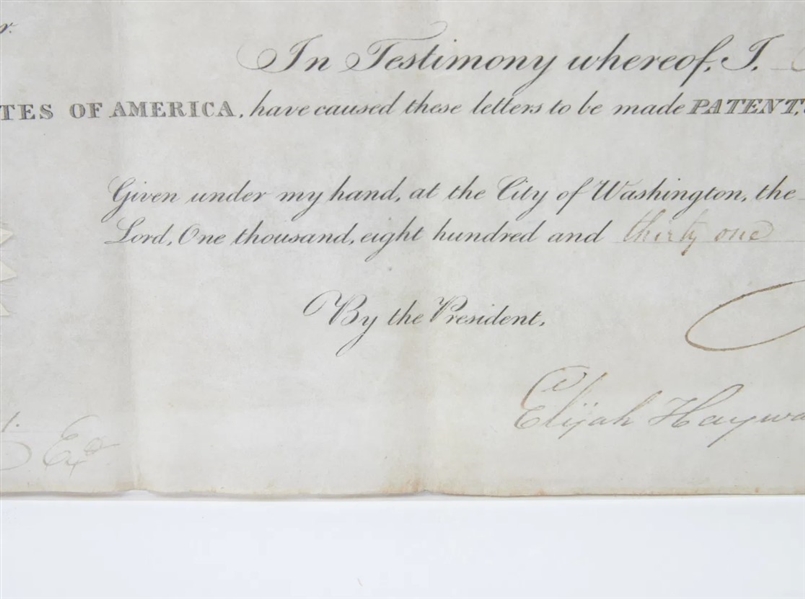 In Testimony whereof, I,
TES OF AMERICA, have caused these letters to be made PATENT,
Given under my hand, at the City of Washington, the
Lord, One thousand, eight hundred and thirty one
By the President.
Elijah Haywa